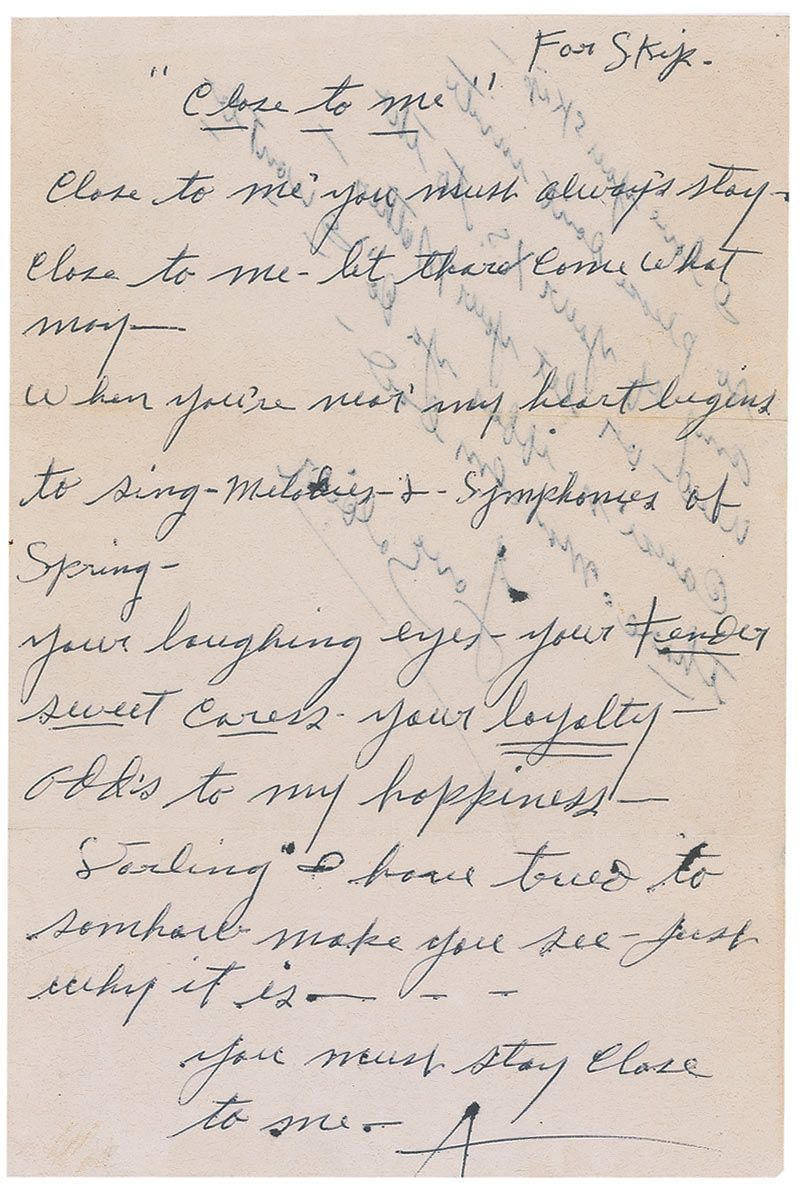 For Skip.
"Close to me"
Close to me' you must alway's stay-
Close to me- let there come what
may-
When you're near' my heart begins
to sing- Melodies- & - Symphonies of
Spring-
your laughing eyes- your tender
sweet caress- your loyalty-
Add's to my happiness-
Darling" I have tried to
somhow make you see- just
why it is- - -
you must stay close
to me.-